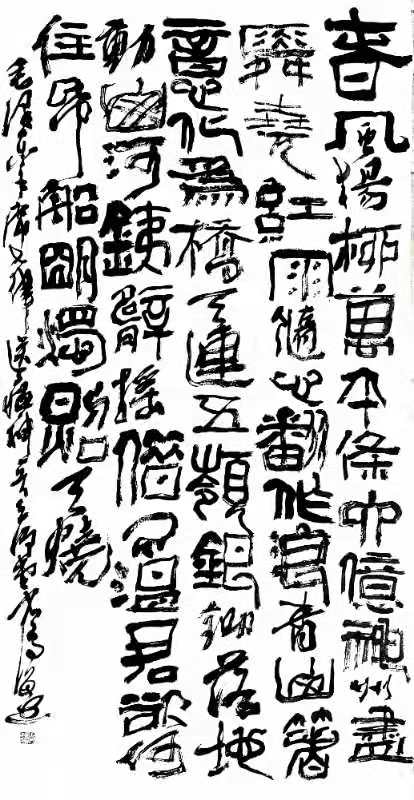 春風楊柳萬千條六億神州盡
舜堯紅雨隨心翻作浪青山箸
意化為橋天連五嶺銀鋤落地
動山河銕臂搖借問瘟君欲何
往帋船明燭照天燒
毛澤東 送瘟神